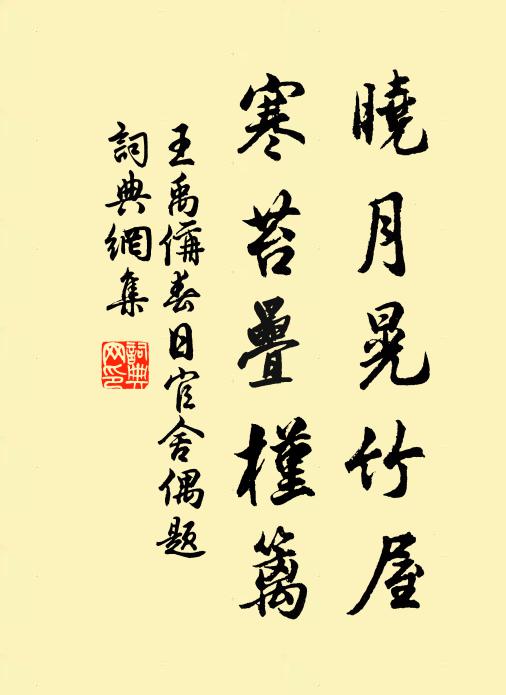 曉月晃竹屋
寒苔疊槿籬
王禹偁春日官舍偶題
詞典網集
詞典網印